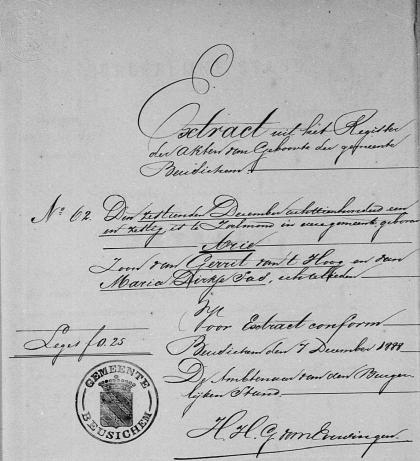 Extract uit het Register
der Akten van Geboorte der gemeente
Beusichem.
No 62. Den zestienden December achttienhonderd een
en zestig is te Zoelmond in deze gemeente geboren
Arie
Zoon van Gerrit van 't Hoog en van
Maria Dirkje Tas, echtelieden
Voor Extract conform
Leges f 0.25
Beusichem den 7 December 1888
De Ambtenaar van den Burger-
lijken Stand.
GEMEENTE
BEUSICHEM
H. H. G. van